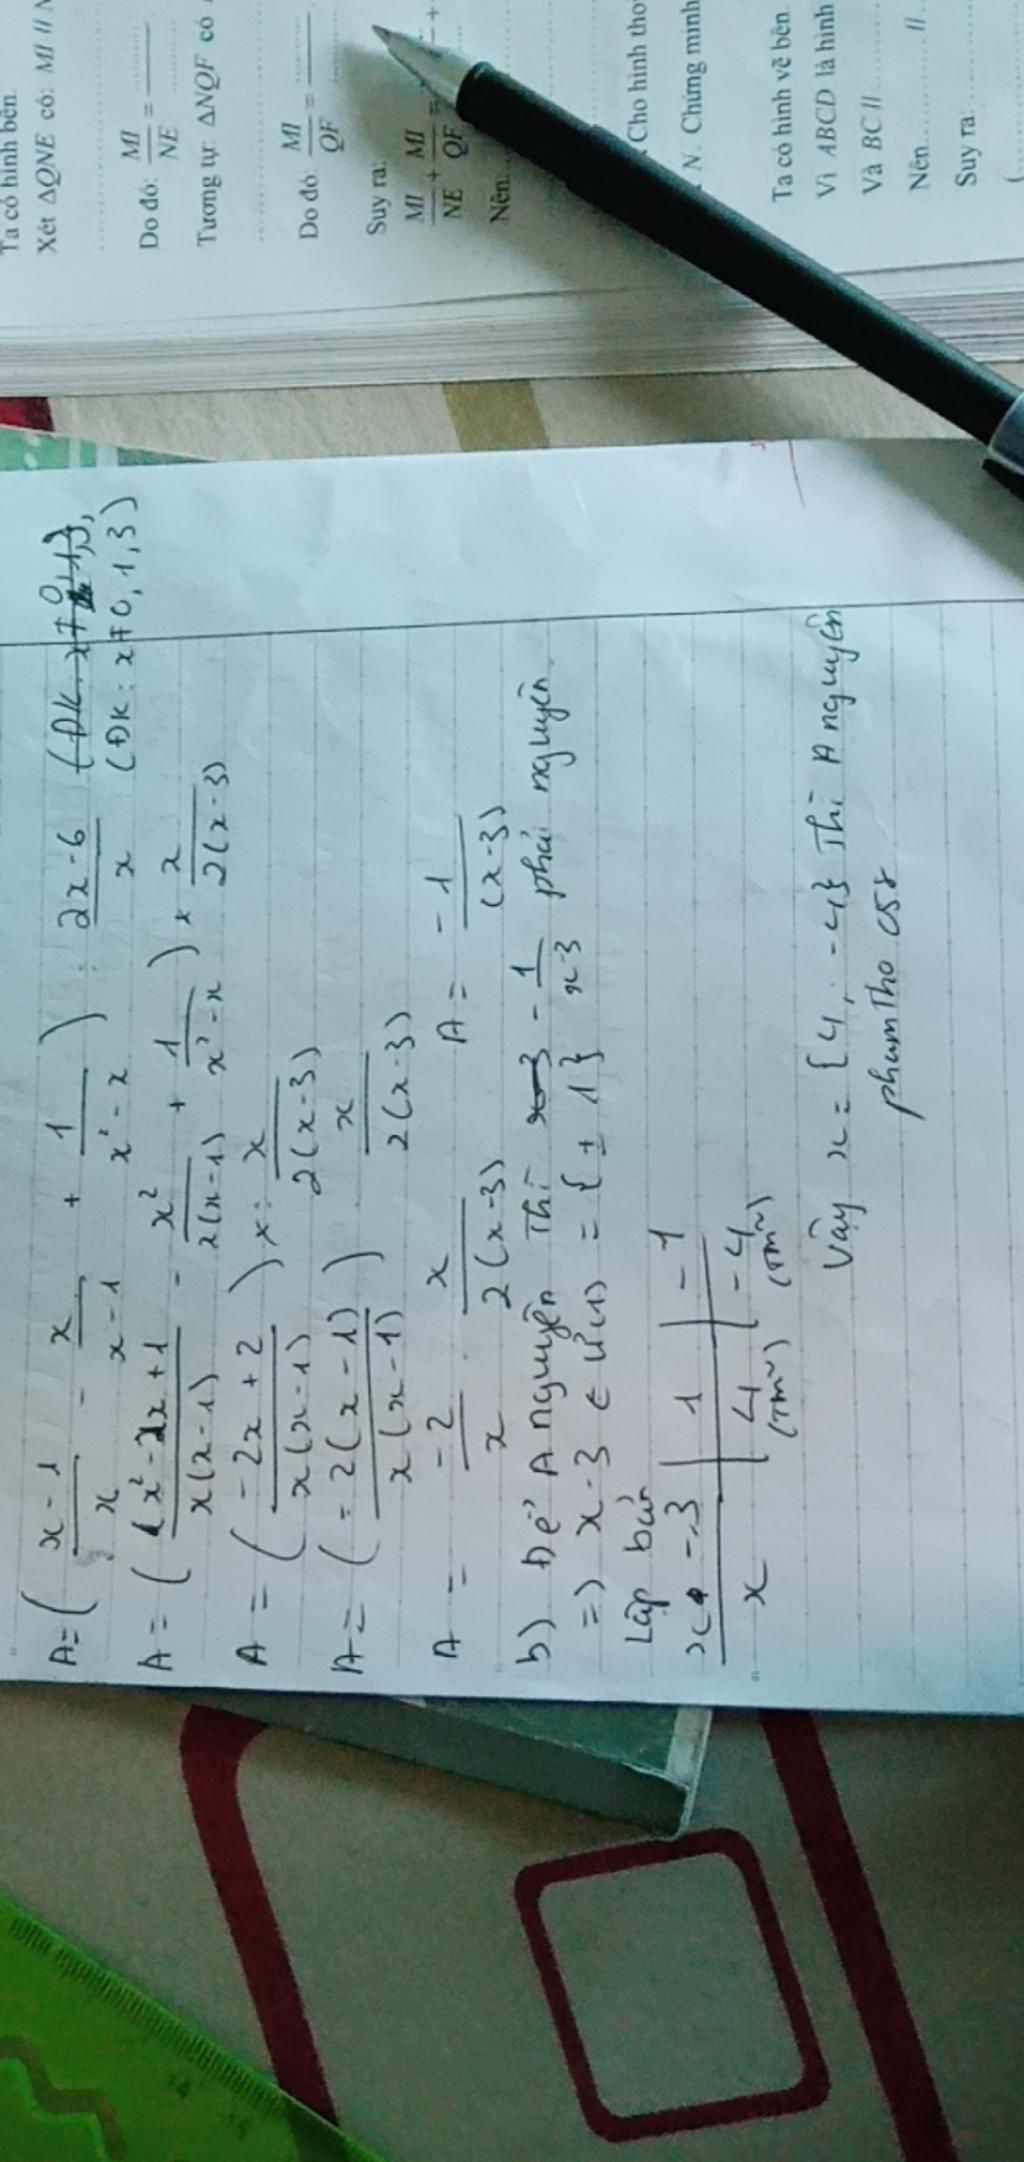 Ta có hình bên.
Xét ΔQNE có: MI // N
Do đó: MI/NE = ......
Tương tự: ΔNQF có
Do đó: MI/QF = ......
Suy ra:
MI/NE + MI/QF =
Nên:
Cho hình tho
N. Chứng minh
Ta có hình vẽ bên.
Vì ABCD là hình
Và BC //
Nên ...... //
Suy ra: ......
(
A = ( x - 1 / x - x / x - 1 + 1 / x² - x ) : 2x - 6 / x
(ĐK: x ≠ 0, 1, 3)
A = ( (x² - 2x + 1 / x(x - 1) - x² / x(x - 1) + 1 / x² - x ) × x / 2(x - 3)
A = ( - 2x + 2 / x(x - 1) ) × x / 2(x - 3)
A = ( - 2(x - 1) / x(x - 1) ) x / 2(x - 3)
A = - 2 / x . x / 2(x - 3) A = - 1 / (x - 3)
b) Để A nguyên Thì - 1 / x - 3 phải nguyên
=) x - 3 ∈ Ư(1) = { ± 1 }
Lập bản
x - 3 | 1 | - 1
x | 4 | - 4
(TM) (TM)
Vậy x = { 4, - 4 } Thì A nguyên
phamTho